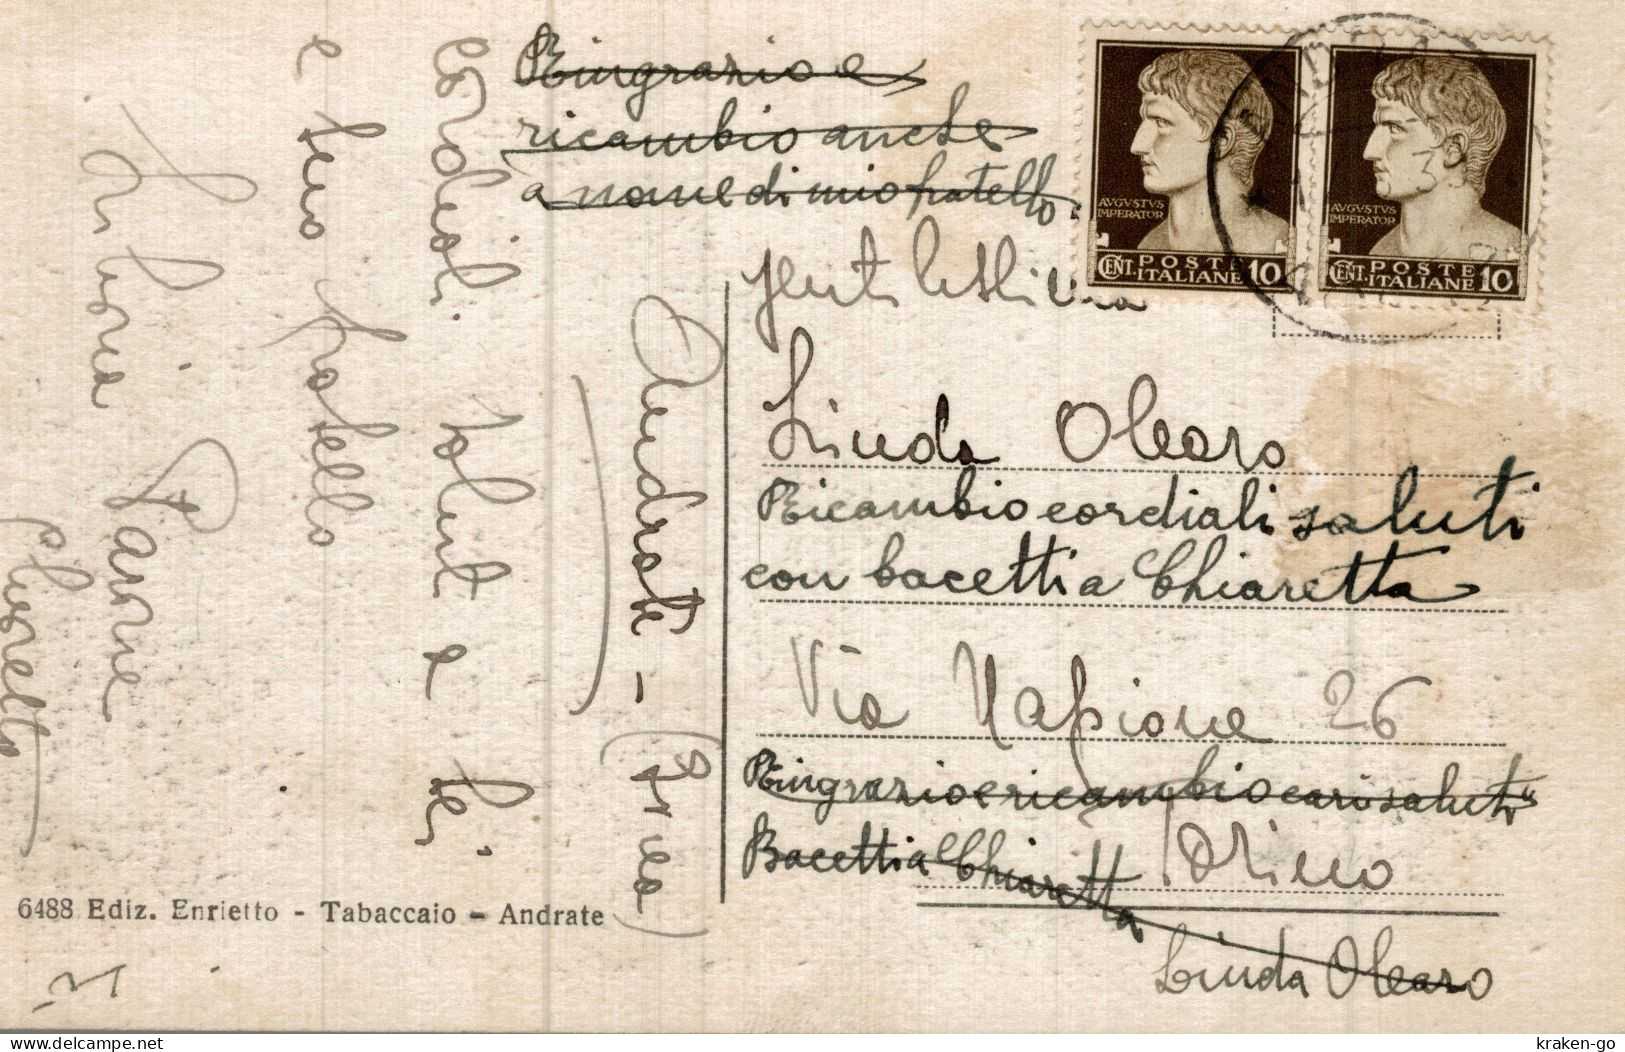 Ringrazio e
ricambio anche
a nome di mio fratello
AVGVSTVS
IMPERATOR
CENT. POSTE
ITALIANE 10
AVGVSTVS
IMPERATOR
CENT. POSTE
ITALIANE 10
Gentilissima
Linda Olearo
Ricambio cordiali saluti
con bacetti a Chiaretta
Via Napione 26
Ringrazio e ricambio cari saluti
Bacetti a Chiaretta
Torino
Linda Olearo
Andrate - (Ivrea)
cordiali saluti a lei
e suo fratello
Chiaretta
6488 Ediz. Enrietto - Tabaccaio - Andrate
kraken-go
© www.delcampe.net